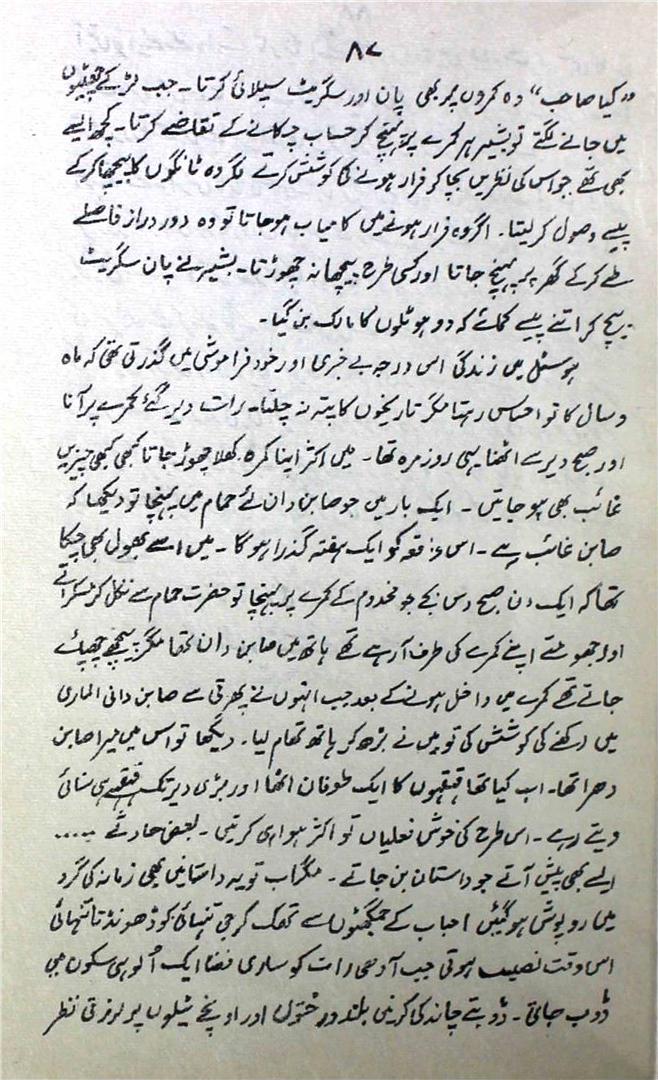 ۸۷
“کیا صاحب” وہ کمروں پر بھی پان اور سگریٹ سپلائی کرتا۔ جب لڑکے چھٹیوں
میں جانے لگتے تو بشیر ہر کمرے پر پہنچ کر حساب چکانے کے تقاضے کرتا۔ کچھ ایسے
بھی تھے جو اس کی نظریں بچا کر فرار ہونے کی کوشش کرتے مگر وہ ٹانگوں کا پیچھا کر کے
پیسے وصول کر لیتا۔ اگر وہ فرار ہونے میں کامیاب ہو جاتا تو وہ دور دراز فاصلے
طے کر کے گھر پر پہنچ جاتا اور کسی طرح پیچھا نہ چھوڑتا۔ بشیر نے پان سگریٹ
بیچ کر اتنے پیسے کمائے کہ دو ہوٹلوں کا مالک بن گیا۔
ہوسٹل میں زندگی اس درجہ بے خبری اور خود فراموشی میں گذرتی تھی کہ ماہ
و سال کا تو احساس رہتا مگر تاریخوں کا پتہ نہ چلتا۔ رات دیر گئے کمرے پر آنا
اور صبح دیر سے اٹھنا یہی روزمرہ تھا۔ میں اکثر اپنا کمرہ کھلا چھوڑ جاتا کبھی کبھی چیزیں
غائب بھی ہو جاتیں۔ ایک بار میں جو صابن دان لئے حمام میں پہنچا تو دیکھا کہ
صابن غائب ہے۔ اس واقعہ کو ایک ہفتہ گذرا ہوگا۔ میں اسے بھول بھی چکا
تھا کہ ایک دن صبح دس بجے جو مخدوم کے کمرے پر پہنچا تو حضرت حمام سے نکل کر مسکراتے
اور جھومتے اپنے کمرے کی طرف آرہے تھے ہاتھ میں صابن دان تھا مگر پیچھے چھپائے
جاتے تھے کمرے میں داخل ہونے کے بعد جب انہوں نے پھرتی سے صابن دانی الماری
میں رکھنے کی کوشش کی تو میں نے بڑھ کر ہاتھ تھام لیا۔ دیکھا تو اس میں میرا صابن
دھرا تھا۔ اب کیا تھا قہقہوں کا ایک طوفان اٹھا اور بڑی دیر تک قہقہے ہی سنائی
دیتے رہے۔ اس طرح کی خوش فعلیاں تو اکثر ہوا ہی کرتیں۔ بعض حادثے ....
ایسے بھی پیش آتے جو داستان بن جاتے۔ مگر اب تو یہ داستانیں بھی زمانہ کی گرد
میں روپوش ہو گئیں احباب کے جمگھٹوں سے تھک کر جی تنہائی کو ڈھونڈتا تنہائی
اس وقت نصیب ہوتی جب آدھی رات کو ساری فضا ایک اُلوہی سکون میں
ڈوب جاتی۔ ڈوبتے چاند کی کرنیں بلند درختوں اور اونچے ٹیلوں پر لرزتی نظر